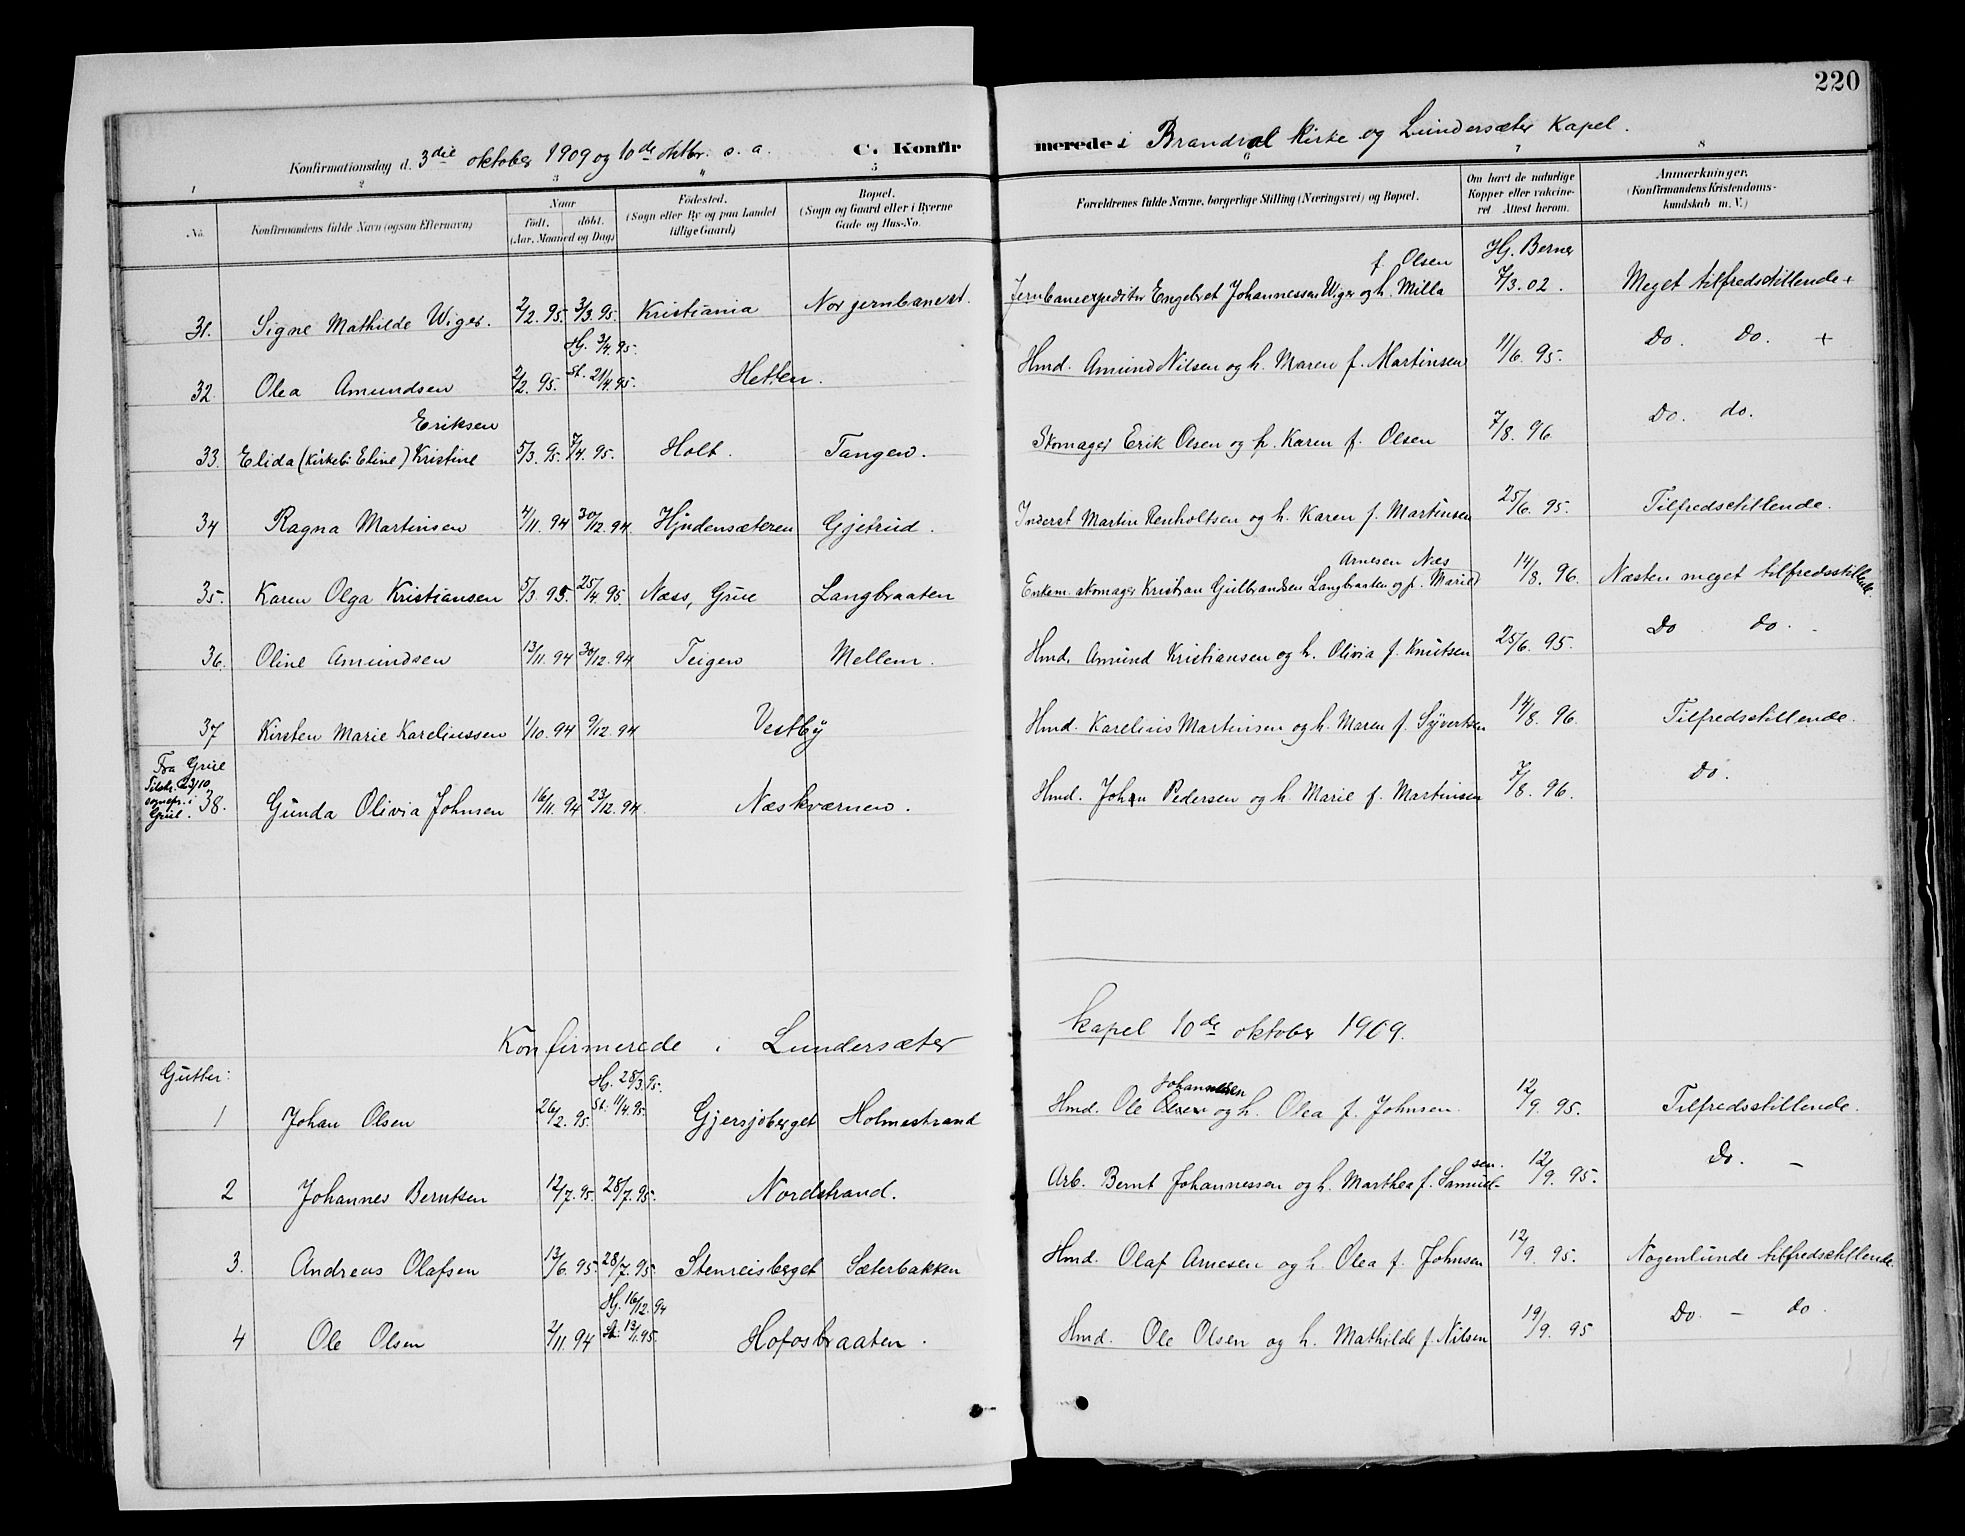 220
Konfirmationsdag d. 3die oktober 1909 og 10de oktbr. s. a. C. Konfir
merede i Brandval kirke og Lundersæter Kapel.
1 2 3 4 5 6 7 8
No. Konfirmandens fulde Navn (ogsaa Efternavn) Naar født. døbt. (Aar, Maaned og Dag) Fødested. (Sogn eller By og paa Landet tillige Gaard) Bopæl. (Sogn og Gaard eller i Byerne Gade og Hus-No. Forældrenes fulde Navne, borgerlige Stilling (Næringsvei) og Bopæl. Om havt de naturlige Kopper eller vaccineret. Attest herom. Anmærkninger. (Konfirmandens Kristendomskundskab m. V.)
31. Signe Mathilde Wiger. 2/2. 95. 3/3. 95. Kristiania Nor jernbanest. Jernbaneexpeditør Engebret Johannessen Wiger og h. Milla f. Olsen Hj. Berner 7/3. 02. Meget tilfredsstillende +
32 Olea Amundsen 2/2. 95. Hj. 3/4. 95. St. 21/4. 95. Hetten. Hmd. Amund Nilsen og h. Maren f. Martinsen 11/6. 95. Do. Do. +
33. Elida (Kirkeb. Eline) Kristine Eriksen 5/3. 95. 7/4. 95. Holt. Tangen. Skomager Erik Olsen og h. Karen f. Olsen 7/8. 96. Do. do.
34 Ragna Martinsen 4/11. 94 30/12. 94. Hyndensæteren Gjetrud. Inderst Martin Renholtsen og h. Karen f. Martinsen 25/6. 95. Tilfredsstillende.
35. Karen Olga Kristiansen 5/3. 95. 25/4. 95. Næss, Grue Langbraaten Enkem. skomager Kristian Gulbrandsen Langbraaten og f. Marie Arnesen Næs 14/8. 96. Næsten meget tilfredsstillende.
36. Oline Amundsen 13/11. 94 30/12. 94 Teigen Mellem. Hmd. Amund Kristiansen og h. Olivia f. Knutsen 25/6. 95. Do do.
37 Kirsten Marie Kareliussen 1/10. 94 9/12. 94 Vestby Hmd. Karelius Martinsen og h. Maren f. Syvertsen 14/8. 96. Tilfredsstillende.
Fra Grue
Tilstr. 23/10 sognepr. i Grue.
38. Gunda Olivia Johnsen 16/11. 94 23/12. 94 Næskværnen. Hmd. John Pedersen og h. Marie f. Martinsen 7/8. 96. Do.
Konfirmerede i Lundersæter kapel 10de oktober 1909.
Gutter:
1 Johan Olsen 26/2. 95. Hj. 28/3. 95. St. 11/4. 95. Gjersjøberget Holmestrand Hmd. Ole Olsen Johannesen og h. Olea f. Johnsen. 12/9. 95. Tilfredsstillende.
2 Johannes Berntsen 12/7. 95. 28/7. 95. Nordstrand. Arb. Bernt Johannessen og h. Marthea f. Samuelsen. 12/9. 95. Do. –
3. Andreas Olafsen 13/6. 95. 28/7. 95 Stenreisberget Sæterbakken Hmd. Olaf Arnesen og h. Olea f. Johnsen 12/9. 95. Nogenlunde tilfredsstillende.
4 Ole Olsen 2/11. 94 Hj. 16/12. 94 St. 13/1. 95. Hofosbraaten. Hmd. Ole Olsen og h. Mathilde f. Nilsen 19/9. 95 Do – do.